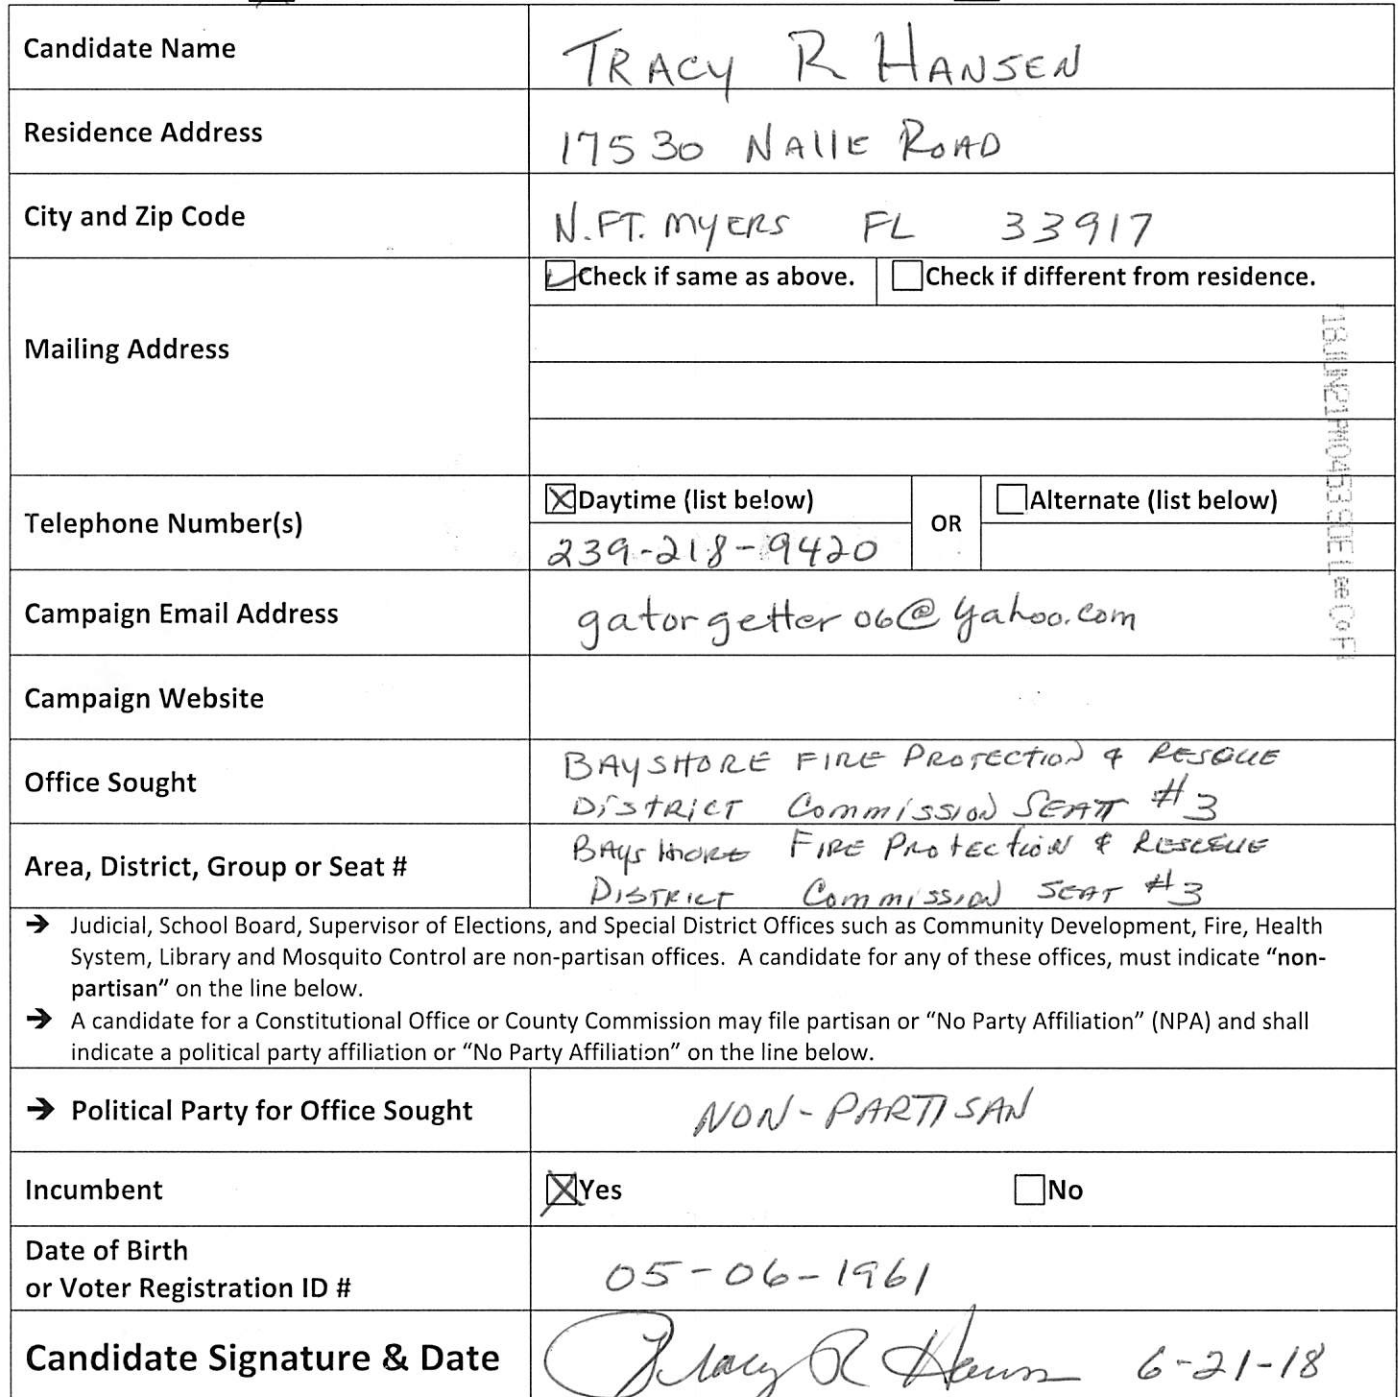 Candidate Name TRACY R HANSEN
Residence Address 17530 NAllE ROAD
City and Zip Code N.FT. MYERS FL 33917
Check if same as above. Check if different from residence.
Mailing Address
Daytime (list below) OR Alternate (list below)
Telephone Number(s)
239-218-9420
Campaign Email Address gatorgetter06@yahoo.com
Campaign Website
Office Sought BAYSHORE FIRE PROTECTION & RESCUE
DISTRICT Commission SEAT #3
Area, District, Group or Seat # BAYSHORE FIRE PROtection & RESCEUE
DISTRICT Commission SEAT #3
→ Judicial, School Board, Supervisor of Elections, and Special District Offices such as Community Development, Fire, Health
System, Library and Mosquito Control are non-partisan offices. A candidate for any of these offices, must indicate “non-
partisan” on the line below.
→ A candidate for a Constitutional Office or County Commission may file partisan or “No Party Affiliation” (NPA) and shall
indicate a political party affiliation or “No Party Affiliation” on the line below.
→ Political Party for Office Sought NON-PARTISAN
Incumbent Yes No
Date of Birth
or Voter Registration ID # 05-06-1961
Candidate Signature & Date Tracy R Hansen 6-21-18
'18JUN21PM0453 SOE Lee Co Fl